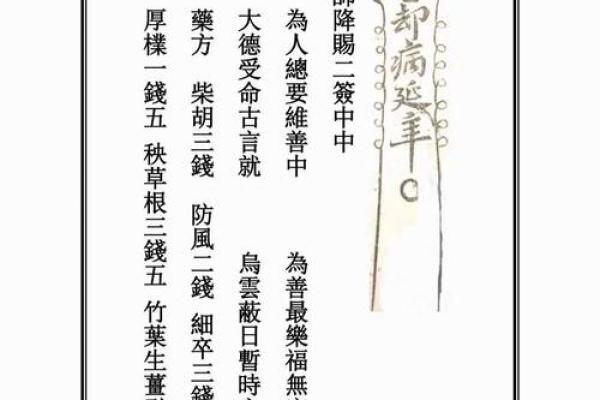 却病延年
師降賜二簽中中
為人總要維善中 為善最樂福無
大德受命古言就 烏雲蔽日暫時
藥方 柴胡三錢 防風二錢 細卒三錢
厚樸一錢五 秧草根三錢五 竹葉生薑